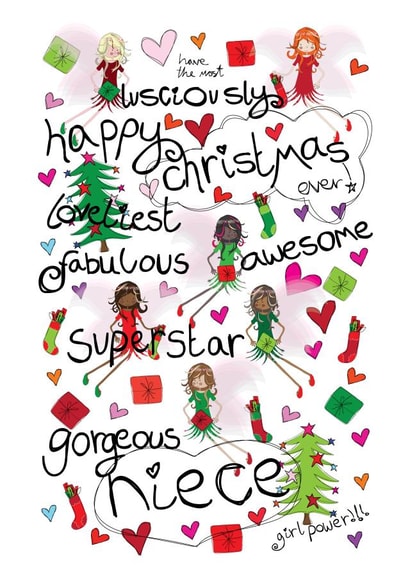 have
the most
lusciously
happy
christmas
ever!
loveliest
fabulous awesome
superstar
gorgeous
niece
girl power!!!